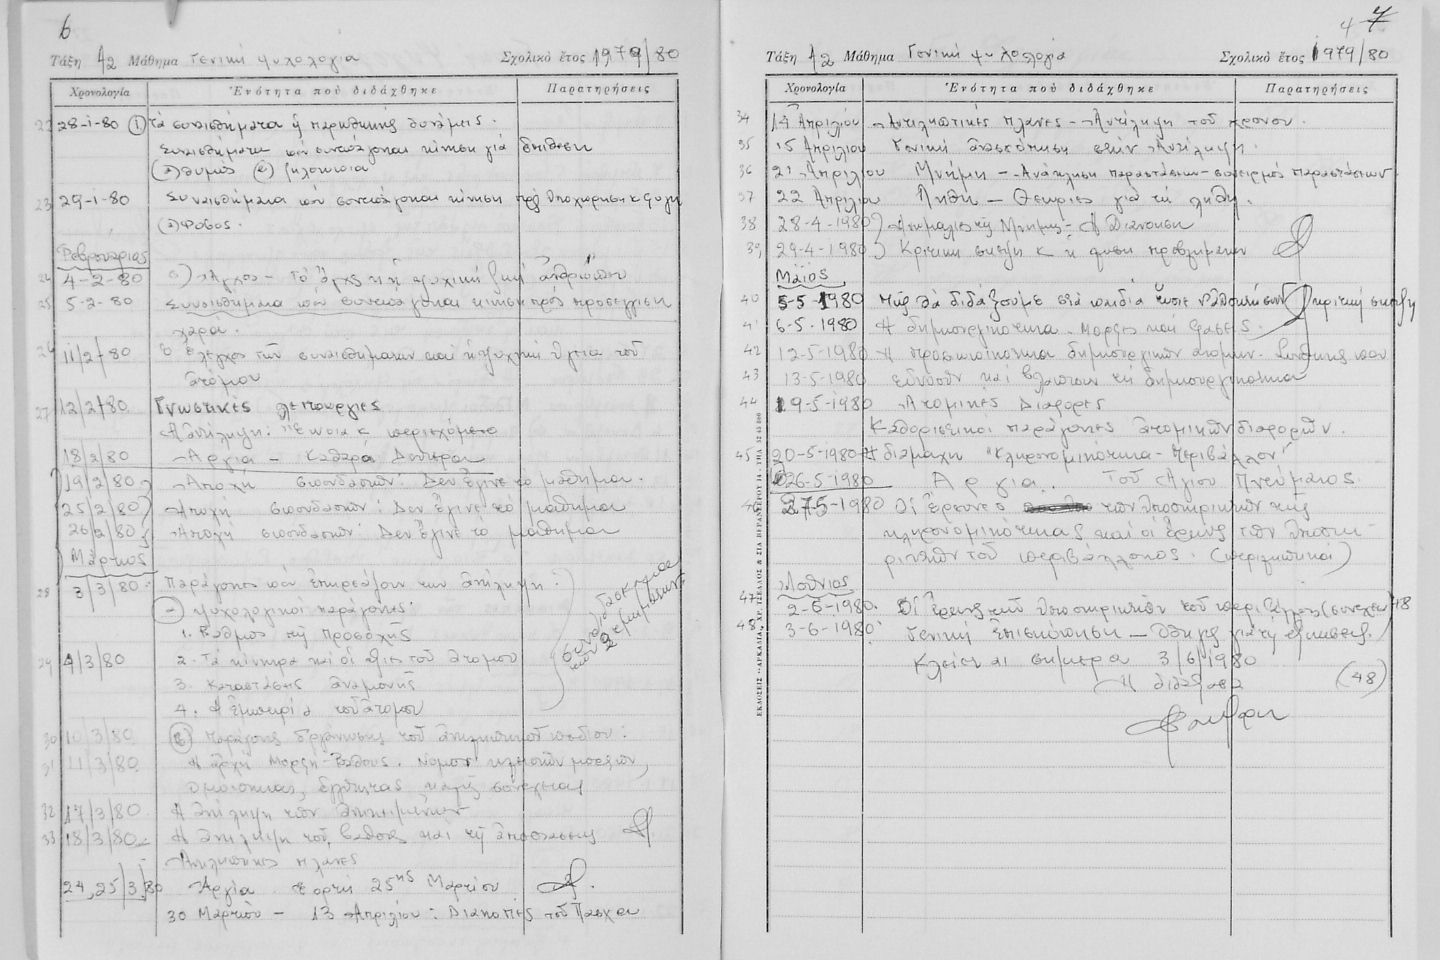 6
Τάξη Α2 Μάθημα Γενική ψυχολογία Σχολικὸ ἔτος 1979/80
Χρονολογία Ἑνότητα ποὺ διδάχθηκε Παρατηρήσεις
22 28-1-80 ① Τὰ συναισθήματα ἢ παρωθητικὲς δυνάμεις.
Συναισθήματα ποὺ συνεπάγονται κίνηση γιὰ ἐπίθεση
θυμὸς ζηλοτυπία
23 29-1-80 Συναισθήματα ποὺ συνεπάγονται κίνηση πρὸς ὑποχώρηση κ φυγή
Φόβος.
Φεβρουάριος
24 4-2-80 Ἄγχος - Τὸ ἄγχος κ ἡ ψυχικὴ ζωὴ ἀνθρώπου
25 5-2-80 Συναισθήματα ποὺ συνεπάγονται κίνηση πρὸς προσέγγιση
χαρά.
26 11/2/80 Ὁ ἔλεγχος τῶν συναισθημάτων καὶ ἡ ψυχικὴ ὑγεία τοῦ
ἀτόμου
27 12/2/80 Γνωστικὲς λειτουργίες
Ἡ ἀντίληψη: Ἔννοια κ περιεχόμενο
18/2/80 Ἀργία - Καθαρὰ Δευτέρα
19/2/80 Ἀποχὴ σπουδαστῶν: Δὲν ἔγινε τὸ μάθημα.
25/2/80 Ἀποχὴ σπουδαστῶν: Δὲν ἔγινε τὸ μάθημα
26/2/80 Ἀποχὴ σπουδαστῶν. Δὲν ἔγινε τὸ μάθημα
Μάρτιος
28 3/3/80 Παράγοντες ποὺ ἐπηρεάζουν τὴν ἀντίληψη.
ψυχολογικοὶ παράγοντες:
1. Βαθμὸς τῆς προσοχῆς
29 4/3/80 2. Τὰ κίνητρα καὶ οἱ ἕξεις τοῦ ἀτόμου
3. Καταστάσεις ἀναμονῆς
4. Ἡ ἐμπειρία τοῦ ἀτόμου
30 10/3/80 Παράγοντες ὀργάνωσης τοῦ ἀντιληπτικοῦ πεδίου:
31 11/3/80 Ἡ ἀρχὴ Μορφῆ-Βάθους. Νόμοι κλειστῶν μορφῶν,
ὁμοιότητας, ἐγγύτητας, καλῆς συνέχειας
32 17/3/80 Ἡ ἀντίληψη τῶν ἀντικειμένων
33 18/3/80 Ἡ ἀντίληψη τοῦ βάθους καὶ τῆς ἀποστάσεως
Ἀντιληπτικὲς πλάνες
24, 25/3/80 Ἀργία Ἑορτὴ 25ης Μαρτίου
30 Μαρτίου - 13 Ἀπριλίου: Διακοπὲς τοῦ Πάσχα
4 7
Τάξη Α2 Μάθημα Γενική ψυχολογία Σχολικὸ ἔτος 1979/80
Χρονολογία Ἑνότητα ποὺ διδάχθηκε Παρατηρήσεις
34 14 Ἀπριλίου Ἀντιληπτικὲς πλάνες - Ἀντίληψη τοῦ χρόνου.
35 15 Ἀπριλίου Γενικὴ ἐπισκόπηση στὴν Ἀντίληψη.
36 21 Ἀπριλίου Μνήμη - Ἀνάπλαση παραστάσεων - συνειρμὸς παραστάσεων
37 22 Ἀπριλίου Λήθη - Θεωρίες γιὰ τὴ λήθη.
38 28-4-1980 Ἀνωμαλίες τῆς Μνήμης - Ἡ Διανόηση
39 29-4-1980 Κριτικὴ σκέψη κ ἡ φύση προβλημάτων
Μάϊος
40 5-5-1980 Πῶς θὰ διδάξουμε στὰ παιδιὰ κριτικὴ σκέψη
41 6-5-1980 Ἡ δημιουργικότητα. Μορφὲς καὶ Φάσεις.
42 12-5-1980 Ἡ προσωπικότητα δημιουργικῶν ἀτόμων. Συνθῆκες ποὺ
43 13-5-1980 εὐνοοῦν καὶ βλάπτουν τὴ δημιουργικότητα
44 19-5-1980 Ἀτομικὲς Διαφορὲς
Καθοριστικοὶ παράγοντες ἀτομικῶν διαφορῶν.
45 20-5-1980 Ἡ διαμάχη "Κληρονομικότητα - Περιβάλλον"
26-5-1980 Ἀργία. Τοῦ Ἁγίου Πνεύματος.
46 27-5-1980 Οἱ ἔρευνες τῶν ὑποστηρικτῶν τῆς
κληρονομικότητας καὶ οἱ ἔρευνες τῶν ὑποστη-
ρικτῶν τοῦ περιβάλλοντος.
Ἰούνιος
47 2-6-1980. Οἱ ἔρευνες τῶν ὑποστηρικτῶν τοῦ περιβάλλοντος (συνέχεια) 48
48 3-6-1980 Γενικὴ Ἐπισκόπηση - Ὁδηγίες γιὰ τὶς ἐξετάσεις.
Κλείεται σήμερα 3/6/1980
Ἡ διδάξασα (48)